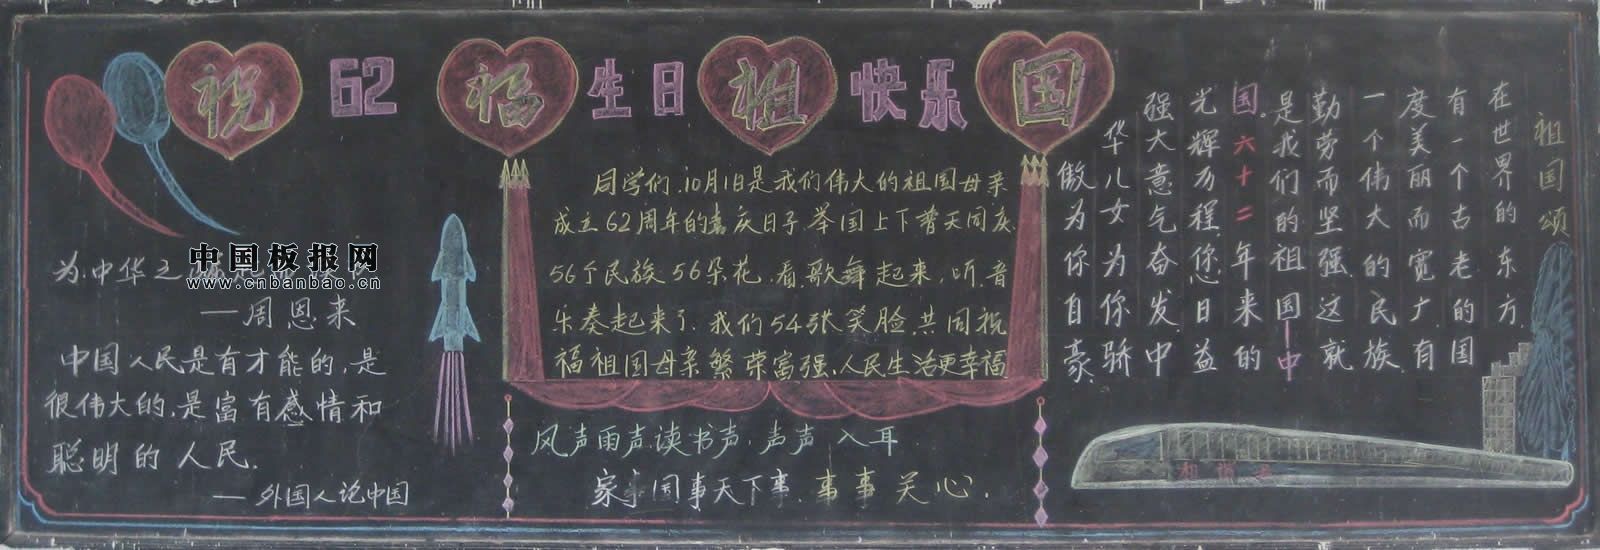 祝 62 福 生日 祖 快乐 国
中国板报网
www.cnbanbao.cn
为中华之
——周恩来
中国人民是有才能的,是
很伟大的,是富有感情和
聪明的人民.
——外国人论中国
同学们,10月1日是我们伟大的祖国母亲
成立62周年的喜庆日子,举国上下普天同庆.
56个民族56朵花,看,歌舞起来,听,音
乐奏起来了,我们54张笑脸,共同祝
福祖国母亲繁荣富强,人民生活更幸福
风声雨声读书声,声声入耳
家事国事天下事,事事关心.
祖国颂
在世界的东方
有一个古老的国
度美丽而宽广有
一个伟大的民族
勤劳而坚强这就
是我们的祖国—中
国.六十二年来的
光辉历程.您日益
强大意气奋发.中
华儿女为你骄
傲为你自豪.